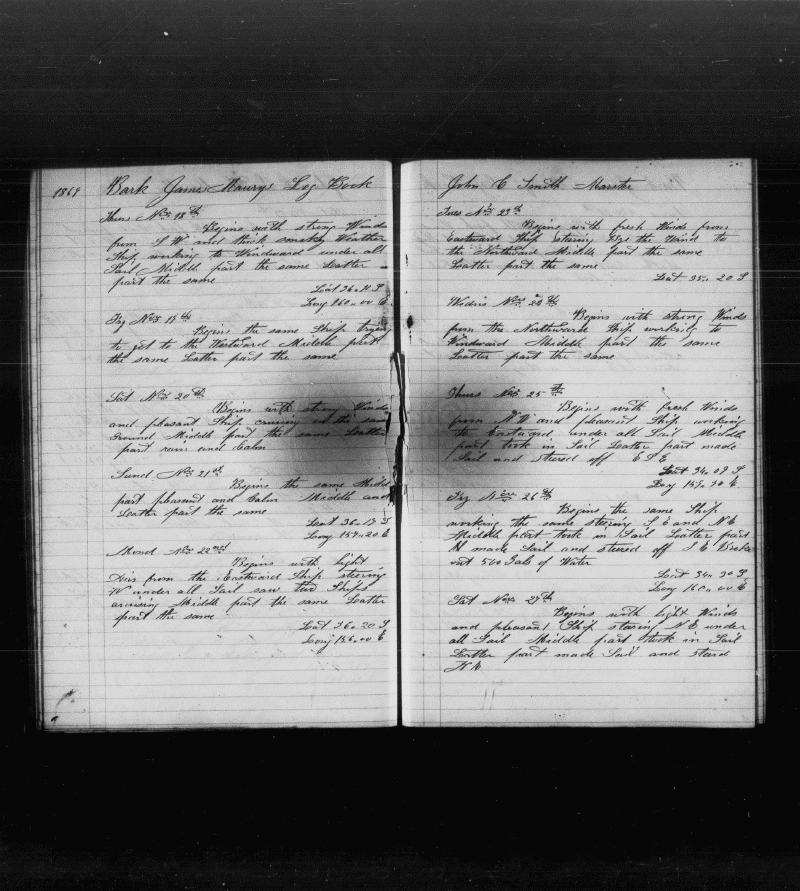 1869 Bark James Maurys Log Book
Thurs Nov 18th
Begins with strong Winds
from S W and thick smoky Weather
Ship working to Windward under all
Sail Middle part the same Latter
part the same
Lat 36.11 S
Long 160.00 E
Fry Nov 19th
Begins the same Ship trying
to get to the Westward Middle part
the same Latter part the same
Sat Nov 20th
Begins with strong Winds
and pleasant Ship cruising on the same
Ground Middle part the same Latter
part rain and Calm
Sund Nov 21st
Begins the same Middle
part pleasant and Calm Middle and
Latter part the same
Lat 36.17 S
Long 159.20 E
Mond Nov 22nd
Begins with light
Airs from the Eastward Ship steering
W under all Sail saw two Ships
cruising Middle part the same Latter
part the same
Lat 36.20 S
Long 158.00 E
John C Smith Marster
Tues Nov 23th
Begins with fresh Winds from
Eastward Ship staring the Wind to
the Northward Middle part the same
Latter part the same
Lat 35.20 S
Wedns Nov 24th
Begins with strong Winds
from the Northward Ship working to
Windward Middle part the same
Latter part the same
Thurs Nov 25th
Begins with fresh Winds
from N W and pleasant Ship working
the Eastward under all Sail Middle
part took in Sail Latter part made
Sail and steered off E S E
Lat 34.09 S
Long 159.30 E
Fry Nov 26th
Begins the same Ship
working the same steering S E and N E
Middle part took in Sail Latter part
made Sail and steered off S E Broke
out 540 Gals of Water
Lat 34.30 S
Long 160.00 E
Sat Nov 27th
Begins with light Winds
and pleasant Ship staring N E under
all Sail Middle part took in Sail
Latter part made Sail and steerd
N E